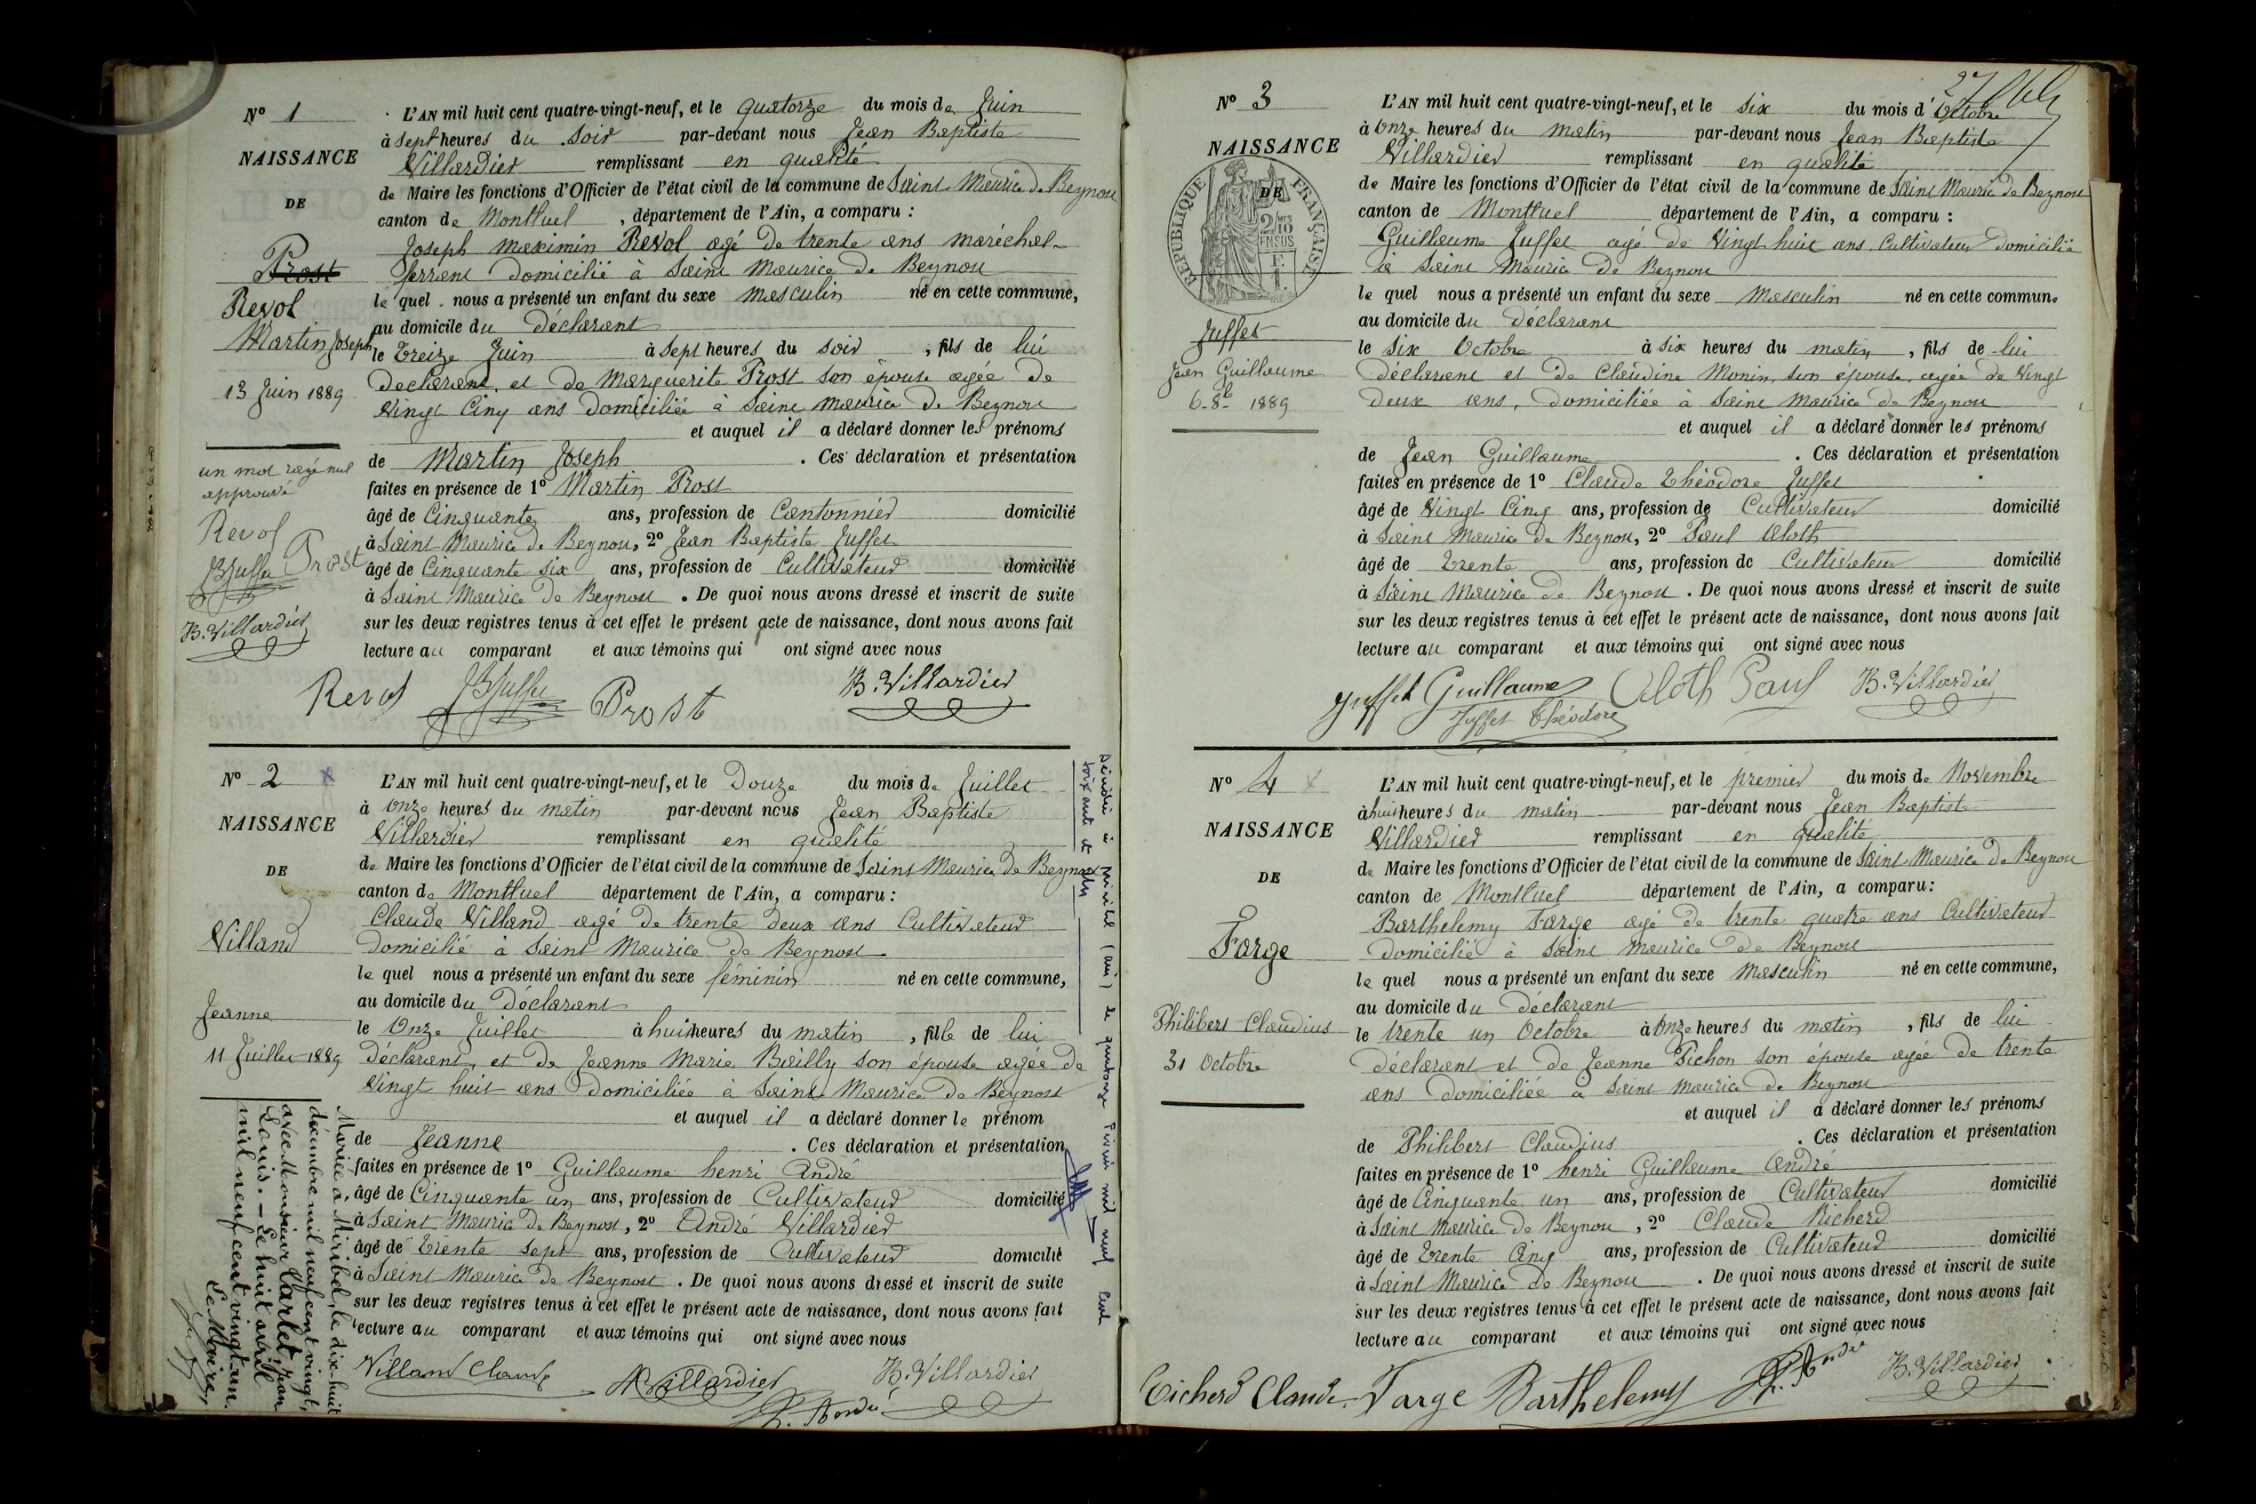 Nº 1
NAISSANCE
DE
Prost
Revol
Martin Joseph
13 Juin 1889
un mot rayé nul
approuvé
Revol
JBJuffet Prost
B. Villardier
L'AN mil huit cent quatre-vingt-neuf, et le quatorze du mois de Juin
à sept heures du soir par-devant nous Jean Baptiste
Villardier remplissant en qualité
de Maire les fonctions d'Officier de l'état civil de la commune de Saint Maurice de Beynost
canton de Montluel, département de l'Ain, a comparu :
Joseph Maximin Revol agé de trente ans maréchal-
ferrant domicilié à Saint Maurice de Beynost
le quel nous a présenté un enfant du sexe masculin né en cette commune,
au domicile du Déclarant
le Treize Juin à sept heures du soir, fils de lui
déclarant, et de Marguerite Prost son épouse agée de
Vingt Cinq ans domiciliée à Saint Maurice de Beynost
et auquel il a déclaré donner les prénoms
de Martin Joseph. Ces déclaration et présentation
faites en présence de 1º Martin Prost
âgé de Cinquante ans, profession de Cantonnier domicilié
à Saint Maurice de Beynost, 2º Jean Baptiste Juffet
âgé de Cinquante six ans, profession de Cultivateur domicilié
à Saint Maurice de Beynost. De quoi nous avons dressé et inscrit de suite
sur les deux registres tenus à cet effet le présent acte de naissance, dont nous avons fait
lecture au comparant et aux témoins qui ont signé avec nous
Revol JBJuffet Prost B. Villardier
Nº 2
NAISSANCE
DE
Villand
Jeanne
11 Juillet 1889
Mariée à Miribel, le dix-huit
décembre mil neuf cent vingt,
avec Monsieur Marlet, Jean
Louis. - Le huit avril
mil neuf cent vingt-un.
Le Maire,
L'AN mil huit cent quatre-vingt-neuf, et le Douze du mois de Juillet
à onze heures du matin par-devant nous Jean Baptiste
Villardier remplissant en qualité
de Maire les fonctions d'Officier de l'état civil de la commune de Saint Maurice de Beynost
canton de Montluel département de l'Ain, a comparu :
Claude Villand agé de trente deux ans Cultivateur
domicilié à Saint Maurice de Beynost
le quel nous a présenté un enfant du sexe féminin né en cette commune,
au domicile du Déclarant
le Onze Juillet à huit heures du matin, fille de lui
déclarant, et de Jeanne Marie Bailly son épouse agée de
Vingt huit ans domiciliée à Saint Maurice de Beynost
et auquel il a déclaré donner le prénom
de Jeanne. Ces déclaration et présentation
faites en présence de 1º Guillaume henri André
âgé de Cinquante un ans, profession de Cultivateur domicilié
à Saint Maurice de Beynost, 2º André Villardier
âgé de Trente sept ans, profession de Cultivateur domicilié
à Saint Maurice de Beynost. De quoi nous avons dressé et inscrit de suite
sur les deux registres tenus à cet effet le présent acte de naissance, dont nous avons fait
lecture au comparant et aux témoins qui ont signé avec nous
Villand Claude A Villardier B. Villardier
h. André
Décédée à Miribel (Ain) le quatorze Février mil neuf cent
soixante et
Nº 3
NAISSANCE
DE
RÉPUBLIQUE FRANÇAISE
Juffet
Jean Guillaume
6-8b 1889
L'AN mil huit cent quatre-vingt-neuf, et le six du mois d'Octobre
à onze heures du matin par-devant nous Jean Baptiste
Villardier remplissant en qualité
de Maire les fonctions d'Officier de l'état civil de la commune de Saint Maurice de Beynost
canton de Montluel département de l'Ain, a comparu :
Guillaume Juffet agé de Vingt huit ans Cultivateur domicilié
à Saint Maurice de Beynost
le quel nous a présenté un enfant du sexe Masculin né en cette commune
au domicile du Déclarant
le Six Octobre à six heures du matin, fils de lui
déclarant et de Claudine Monin, son épouse, agée de Vingt
deux ans, domiciliée à Saint Maurice de Beynost
et auquel il a déclaré donner les prénoms
de Jean Guillaume. Ces déclaration et présentation
faites en présence de 1º Claude Théodore Juffet
âgé de Vingt Cinq ans, profession de Cultivateur domicilié
à Saint Maurice de Beynost, 2º Paul Cloth
âgé de Trente ans, profession de Cultivateur domicilié
à Saint Maurice de Beynost. De quoi nous avons dressé et inscrit de suite
sur les deux registres tenus à cet effet le présent acte de naissance, dont nous avons fait
lecture au comparant et aux témoins qui ont signé avec nous
Juffet Guillaume Cloth Paul B. Villardier
Juffet Théodore
Nº 4
NAISSANCE
DE
Farge
Philibert Claudius
31 Octobre
L'AN mil huit cent quatre-vingt-neuf, et le premier du mois de Novembre
à huit heures du matin par-devant nous Jean Baptiste
Villardier remplissant en qualité
de Maire les fonctions d'Officier de l'état civil de la commune de Saint Maurice de Beynost
canton de Montluel département de l'Ain, a comparu :
Barthelemy Farge agé de trente quatre ans Cultivateur
domicilié à Saint Maurice de Beynost
le quel nous a présenté un enfant du sexe Masculin né en cette commune,
au domicile du Déclarant
le trente un Octobre à onze heures du matin, fils de lui
déclarant et de Jeanne Pichon son épouse agée de trente
ans domiciliée à Saint Maurice de Beynost
et auquel il a déclaré donner les prénoms
de Philibert Claudius. Ces déclaration et présentation
faites en présence de 1º henri Guillaume André
âgé de Cinquante un ans, profession de Cultivateur domicilié
à Saint Maurice de Beynost, 2º Claude Richerd
âgé de Trente Cinq ans, profession de Cultivateur domicilié
à Saint Maurice de Beynost. De quoi nous avons dressé et inscrit de suite
sur les deux registres tenus à cet effet le présent acte de naissance, dont nous avons fait
lecture au comparant et aux témoins qui ont signé avec nous
Richerd Claude Farge Barthelemy h. André B. Villardier